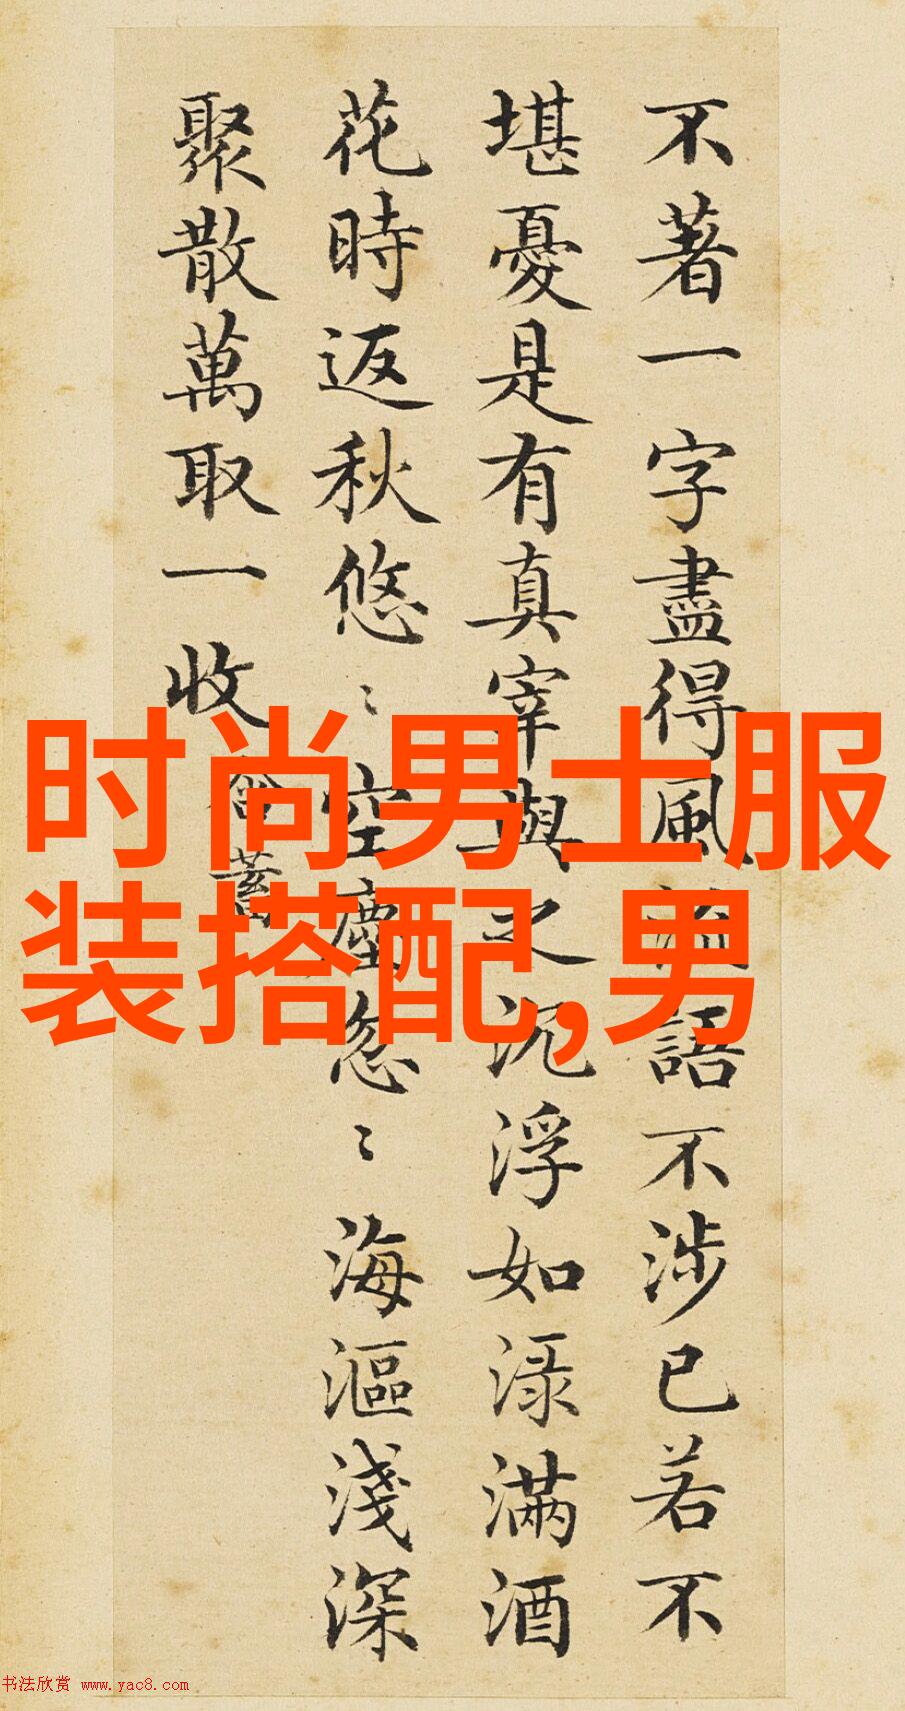 不著一字盡得風流語不涉已若不
堪憂是有真宰與之沉浮如渌滿酒
花時返秋悠〻空塵忽〻海漚淺深
聚散萬取一收 含蓄
时尚男士服
装搭配,男
书法欣赏 www.yac8.com